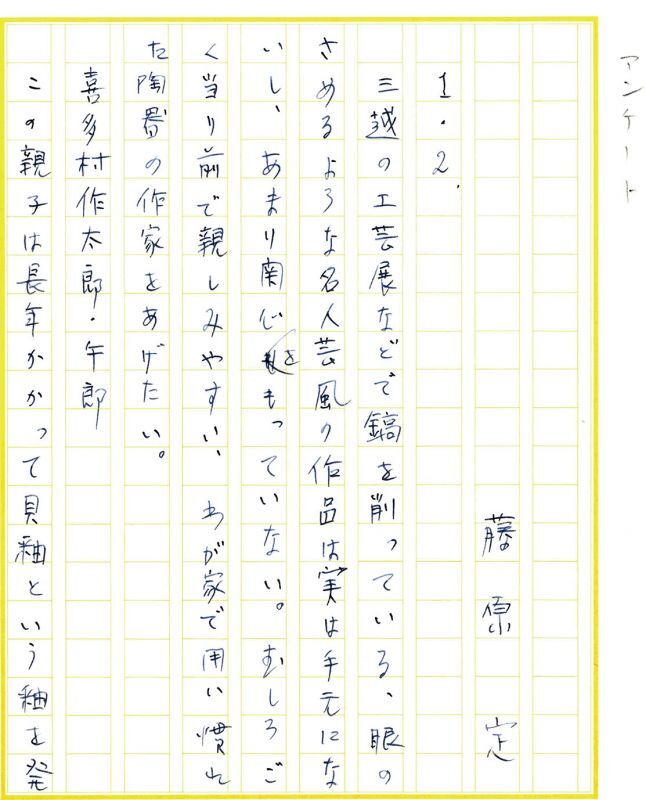 アンケート
藤原 定
1・2.
三越の工芸展などで鎬を削っている、眼の
さめるような名人芸風の作品は実は手元にな
いし、あまり関心をもっていない。むしろご
く当り前で親しみやすい、わが家で用い慣れ
た陶器の作家をあげたい。
喜多村作太郎・午郎
この親子は長年かかって貝釉という釉を発